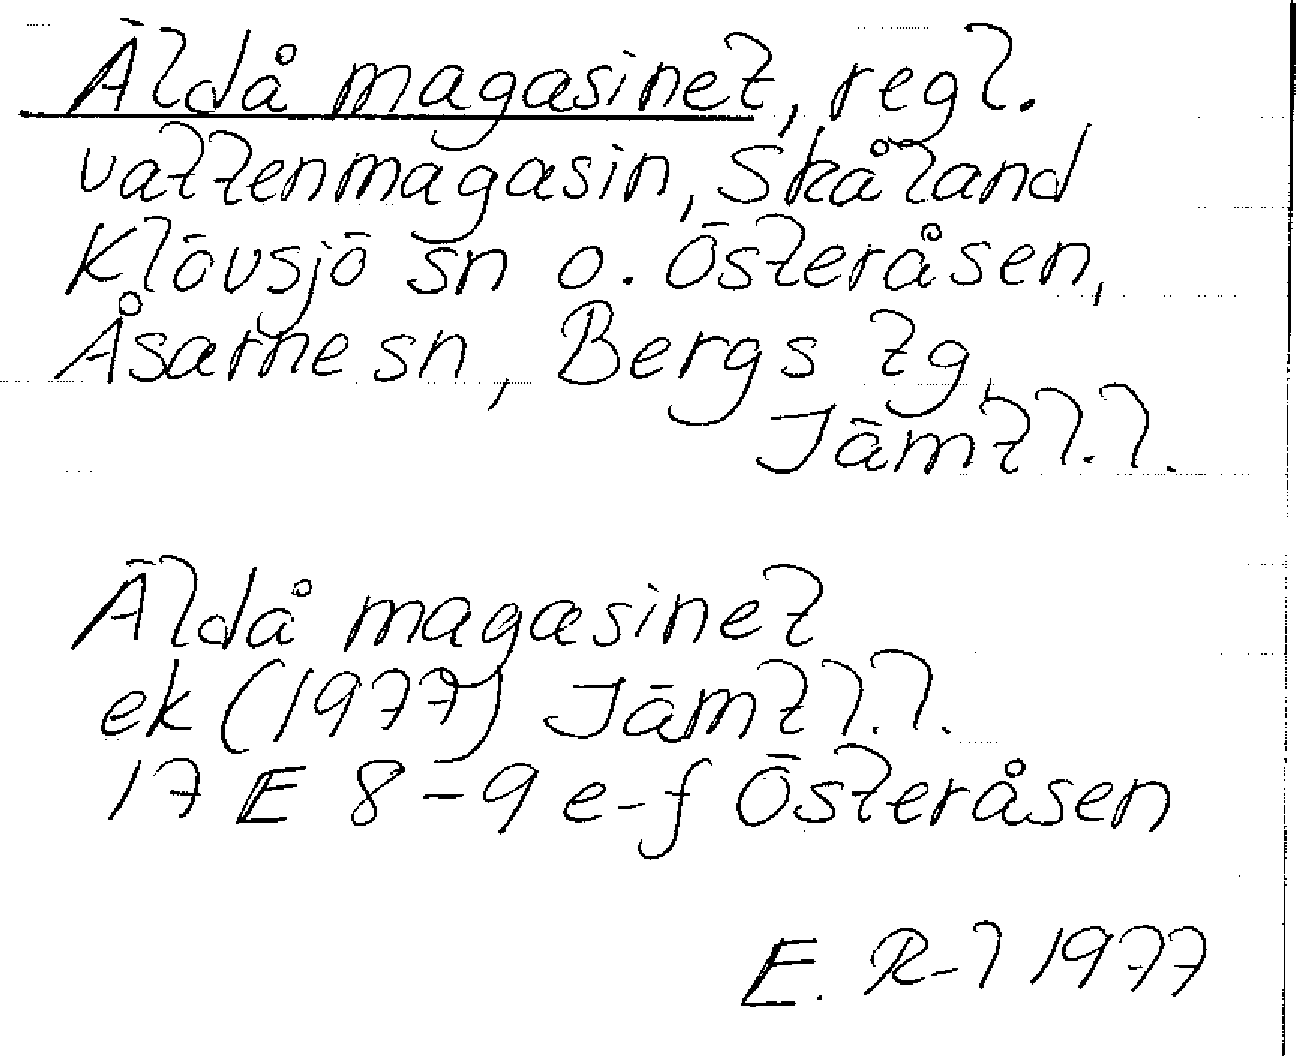 Äldå magasinet, regl.
vattenmagasin, Skåland
Klövsjö sn o. Österåsen,
Åsarne sn, Bergs tg,
Jämtl.l.
Äldå magasinet
ek (1977) Jämtl.l.
17 E 8-9 e-f Österåsen
E. R-l 1977